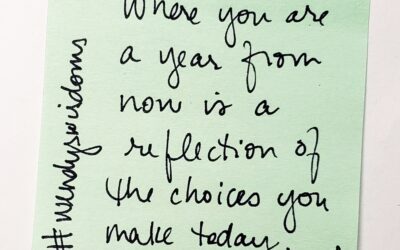 Where you are
a year from
now is a
reflection of
the choices you
make today...
#wendyswisdoms